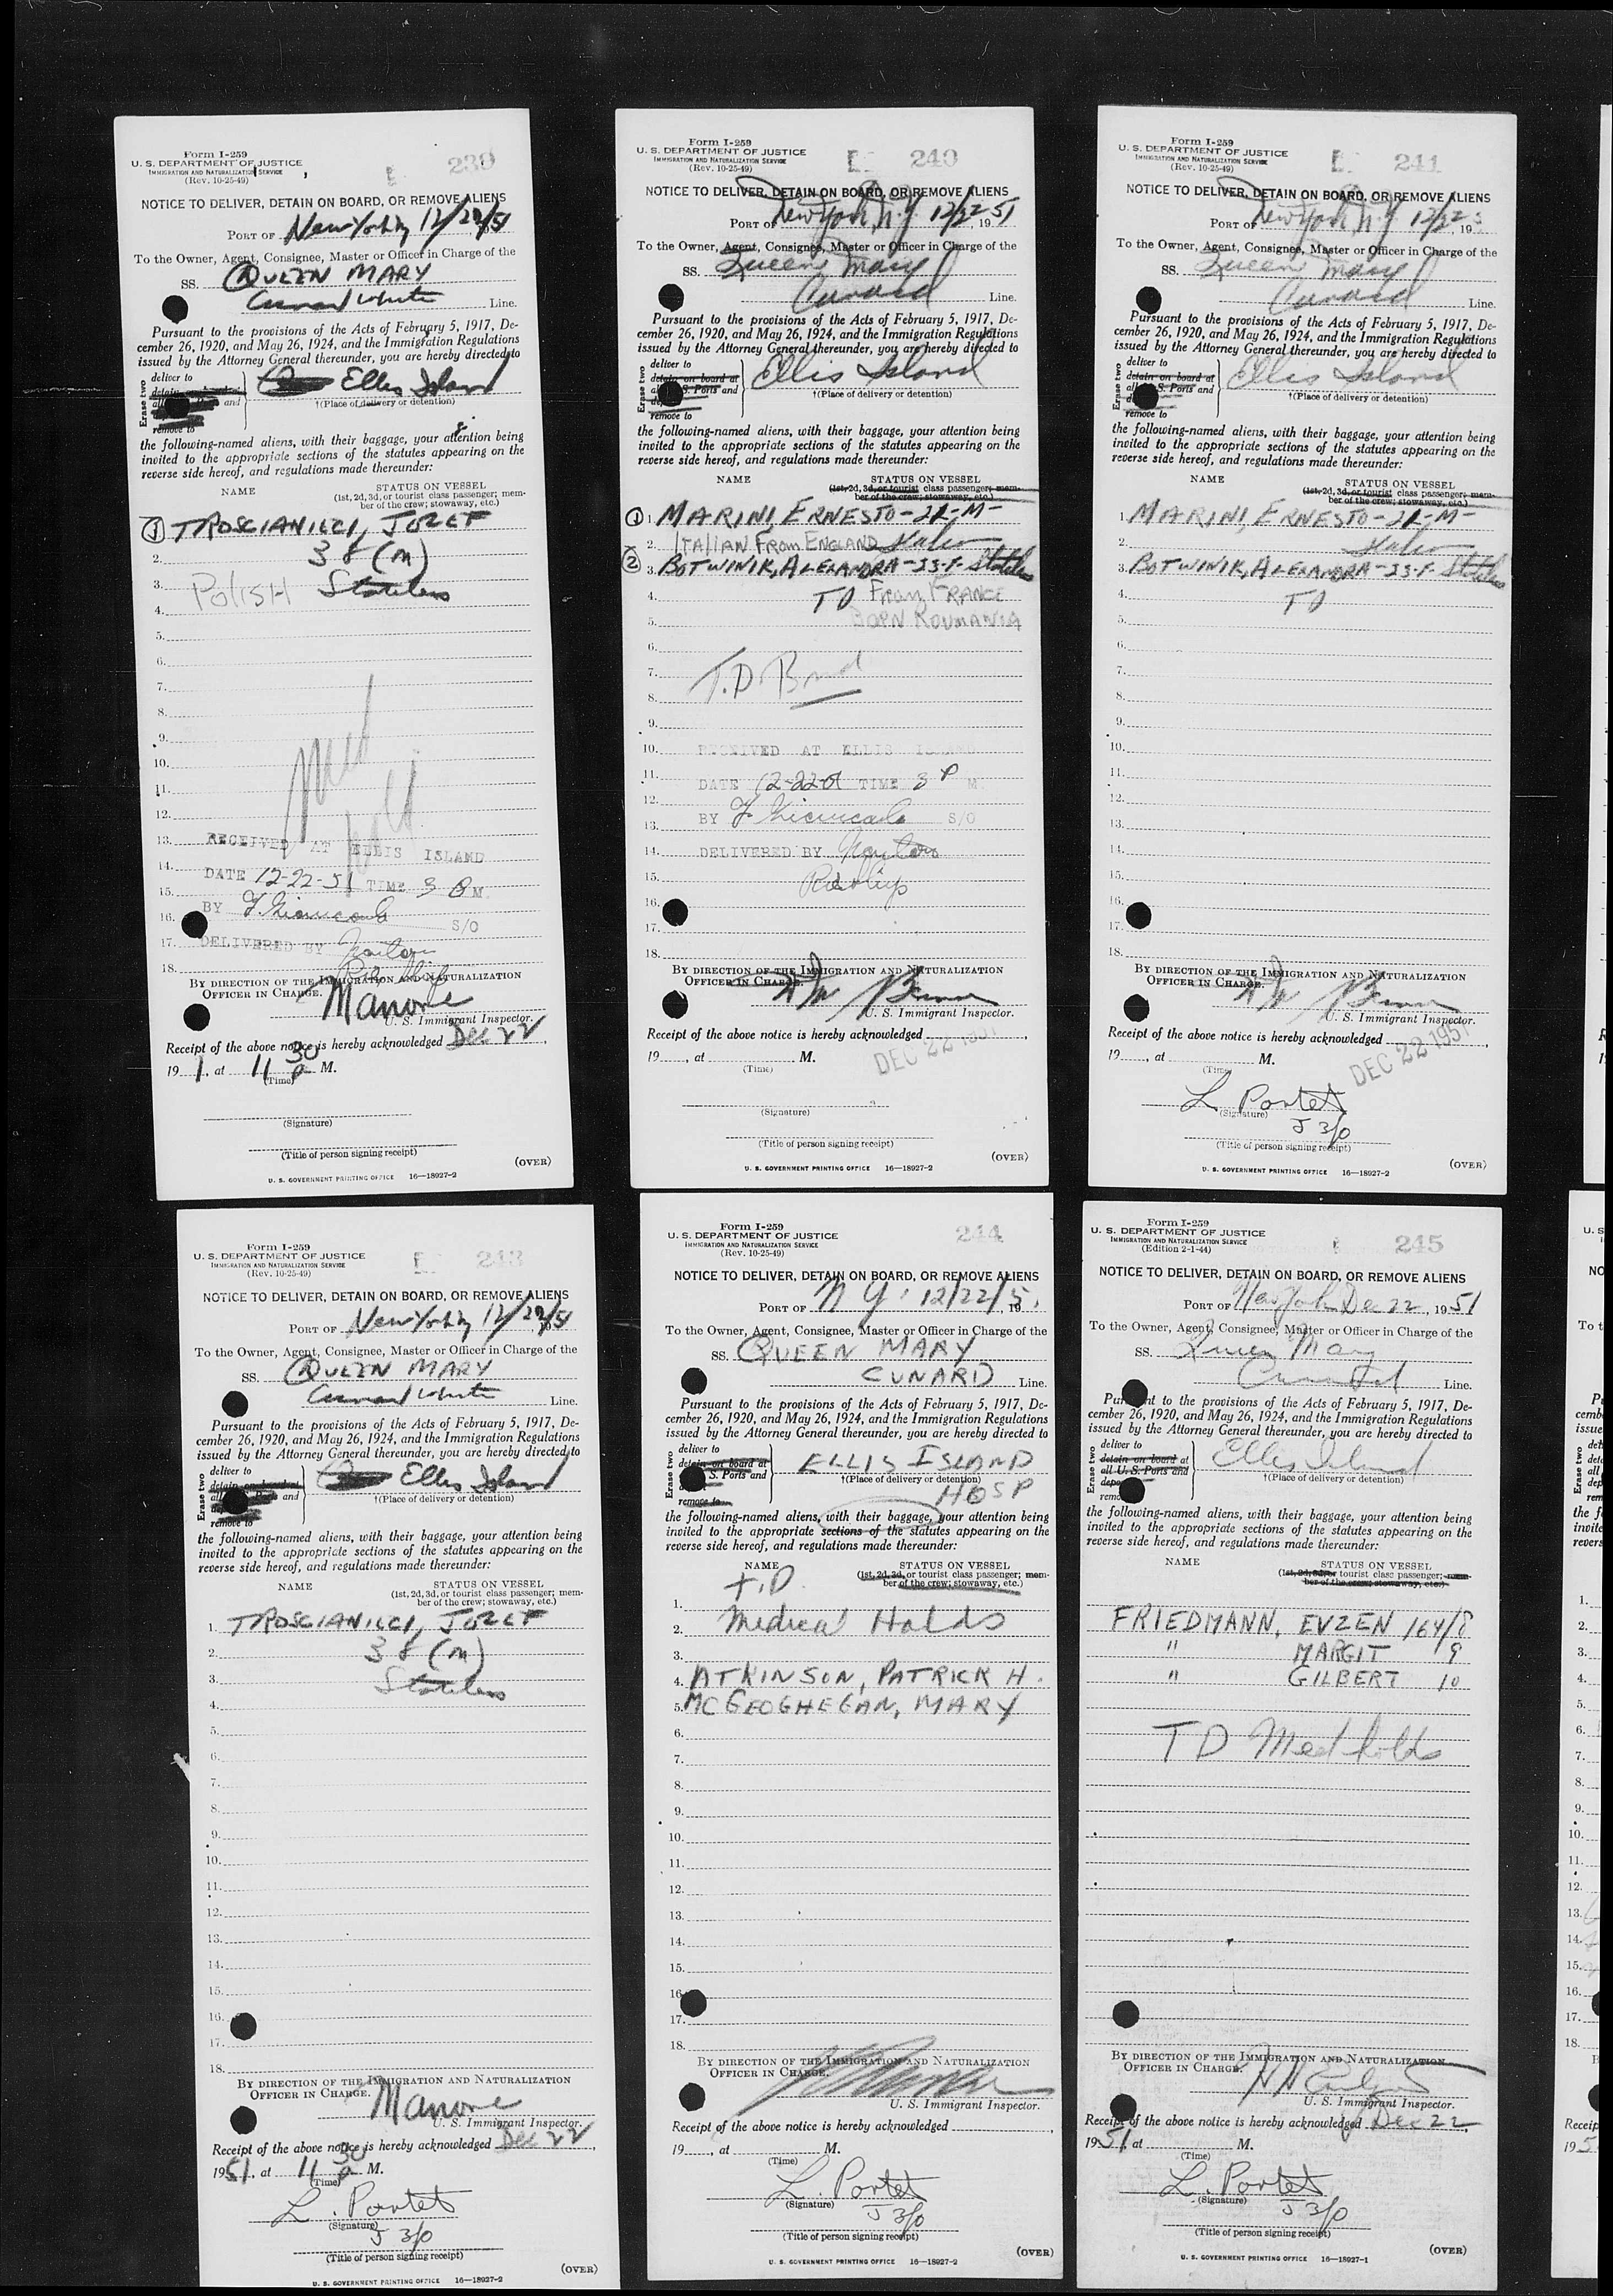 Form I-259
U. S. DEPARTMENT OF JUSTICE
IMMIGRATION AND NATURALIZATION SERVICE
(Rev. 10-25-49)
239
NOTICE TO DELIVER, DETAIN ON BOARD, OR REMOVE ALIENS
PORT OF New York, 12/22/51
To the Owner, Agent, Consignee, Master or Officer in Charge of the
SS. QUEEN MARY
Cunard White Line.
Pursuant to the provisions of the Acts of February 5, 1917, De-
cember 26, 1920, and May 26, 1924, and the Immigration Regulations
issued by the Attorney General thereunder, you are hereby directed to
Erase two
deliver to
detain
all and
remove to
Ellis Island
†(Place of delivery or detention)
the following-named aliens, with their baggage, your attention being
invited to the appropriate sections of the statutes appearing on the
reverse side hereof, and regulations made thereunder:
NAME STATUS ON VESSEL
(1st, 2d, 3d, or tourist class passenger; mem-
ber of the crew; stowaway, etc.)
1 TROSCIANIECI, JOZEF
2. 38 (M)
3. POLISH Stateless
4.
5.
6.
7.
8.
9.
10.
11.
12.
Med
hold
13. RECEIVED AT ELLIS ISLAND
14. DATE 12-22-51 TIME 3 P M
15.
BY
16. S/O
17. DELIVERED BY
18.
BY DIRECTION OF THE IMMIGRATION AND NATURALIZATION
OFFICER IN CHARGE.
Manone
U. S. Immigrant Inspector.
Receipt of the above notice is hereby acknowledged Dec 22,
19 1, at 11 30 a M.
(Time)
(Signature)
(Title of person signing receipt)
(OVER)
U. S. GOVERNMENT PRINTING OFFICE 16—18927-2
Form I-259
U. S. DEPARTMENT OF JUSTICE
IMMIGRATION AND NATURALIZATION SERVICE
(Rev. 10-25-49)
240
NOTICE TO DELIVER, DETAIN ON BOARD, OR REMOVE ALIENS
PORT OF New York, N.Y. 12/22, 1951
To the Owner, Agent, Consignee, Master or Officer in Charge of the
SS. Queen Mary
Cunard Line.
Pursuant to the provisions of the Acts of February 5, 1917, De-
cember 26, 1920, and May 26, 1924, and the Immigration Regulations
issued by the Attorney General thereunder, you are hereby directed to
Erase two
deliver to
detain on board at
all S. Ports and
remove to
Ellis Island
†(Place of delivery or detention)
the following-named aliens, with their baggage, your attention being
invited to the appropriate sections of the statutes appearing on the
reverse side hereof, and regulations made thereunder:
NAME STATUS ON VESSEL
(1st, 2d, 3d, or tourist class passenger; mem-
ber of the crew; stowaway, etc.)
1 1. MARINI, ERNESTO-21-M-
2. ITALIAN FROM ENGLAND Italian
2 3. BOTWINIK, ALEXANDRA-33-F. Stateless
4. TD From FRANCE
5. BORN ROUMANIA
6.
7. T.D. Bond
8.
9.
10. RECEIVED AT ELLIS ISLAND
11. DATE 12-22-51 TIME 3 P M
12.
13. BY S/O
14. DELIVERED BY
15.
16.
17.
18.
BY DIRECTION OF THE IMMIGRATION AND NATURALIZATION
OFFICER IN CHARGE.
U. S. Immigrant Inspector.
Receipt of the above notice is hereby acknowledged
19 , at M.
(Time)
DEC 22 1951
(Signature)
(Title of person signing receipt)
(OVER)
U. S. GOVERNMENT PRINTING OFFICE 16—18927-2
Form I-259
U. S. DEPARTMENT OF JUSTICE
IMMIGRATION AND NATURALIZATION SERVICE
(Rev. 10-25-49)
241
NOTICE TO DELIVER, DETAIN ON BOARD, OR REMOVE ALIENS
PORT OF New York, N.Y. 12/22, 195
To the Owner, Agent, Consignee, Master or Officer in Charge of the
SS. Queen Mary
Cunard Line.
Pursuant to the provisions of the Acts of February 5, 1917, De-
cember 26, 1920, and May 26, 1924, and the Immigration Regulations
issued by the Attorney General thereunder, you are hereby directed to
Erase two
deliver to
detain on board at
all S. Ports and
remove to
Ellis Island
†(Place of delivery or detention)
the following-named aliens, with their baggage, your attention being
invited to the appropriate sections of the statutes appearing on the
reverse side hereof, and regulations made thereunder:
NAME STATUS ON VESSEL
(1st, 2d, 3d, or tourist class passenger; mem-
ber of the crew; stowaway, etc.)
1. MARINI, ERNESTO-21-M-
2. Italian
3. BOTWINIK, ALEXANDRA-33-F. Stateless
4. TD
5.
6.
7.
8.
9.
10.
11.
12.
13.
14.
15.
16.
17.
18.
BY DIRECTION OF THE IMMIGRATION AND NATURALIZATION
OFFICER IN CHARGE.
U. S. Immigrant Inspector.
Receipt of the above notice is hereby acknowledged
19 , at M.
(Time)
DEC 22 1951
L. Portet
(Signature)
J 3/0
(Title of person signing receipt)
(OVER)
U. S. GOVERNMENT PRINTING OFFICE 16—18927-2
Form I-259
U. S. DEPARTMENT OF JUSTICE
IMMIGRATION AND NATURALIZATION SERVICE
(Rev. 10-25-49)
243
NOTICE TO DELIVER, DETAIN ON BOARD, OR REMOVE ALIENS
PORT OF New York, 12/22/51
To the Owner, Agent, Consignee, Master or Officer in Charge of the
SS. QUEEN MARY
Cunard White Line.
Pursuant to the provisions of the Acts of February 5, 1917, De-
cember 26, 1920, and May 26, 1924, and the Immigration Regulations
issued by the Attorney General thereunder, you are hereby directed to
Erase two
deliver to
detain
all and
remove to
Ellis Island
†(Place of delivery or detention)
the following-named aliens, with their baggage, your attention being
invited to the appropriate sections of the statutes appearing on the
reverse side hereof, and regulations made thereunder:
NAME STATUS ON VESSEL
(1st, 2d, 3d, or tourist class passenger; mem-
ber of the crew; stowaway, etc.)
1. TROSCIANIECI, JOZEF
2. 38 (M)
3. Stateless
4.
5.
6.
7.
8.
9.
10.
11.
12.
13.
14.
15.
16.
17.
18.
BY DIRECTION OF THE IMMIGRATION AND NATURALIZATION
OFFICER IN CHARGE.
Manone
U. S. Immigrant Inspector.
Receipt of the above notice is hereby acknowledged Dec 22,
1951, at 11 30 a M.
(Time)
L. Portet
(Signature)
J 3/0
(Title of person signing receipt)
(OVER)
U. S. GOVERNMENT PRINTING OFFICE 16—18927-2
Form I-259
U. S. DEPARTMENT OF JUSTICE
IMMIGRATION AND NATURALIZATION SERVICE
(Rev. 10-25-49)
244
NOTICE TO DELIVER, DETAIN ON BOARD, OR REMOVE ALIENS
PORT OF N Y. 12/22/51
To the Owner, Agent, Consignee, Master or Officer in Charge of the
SS. QUEEN MARY
CUNARD Line.
Pursuant to the provisions of the Acts of February 5, 1917, De-
cember 26, 1920, and May 26, 1924, and the Immigration Regulations
issued by the Attorney General thereunder, you are hereby directed to
Erase two
deliver to
detain on board at
S. Ports and
remove to
ELLIS ISLAND
†(Place of delivery or detention)
HOSP
the following-named aliens, with their baggage, your attention being
invited to the appropriate sections of the statutes appearing on the
reverse side hereof, and regulations made thereunder:
NAME STATUS ON VESSEL
(1st, 2d, 3d, or tourist class passenger; mem-
ber of the crew; stowaway, etc.)
T.D
1.
2. Medical Holds
3.
4. ATKINSON, PATRICK H.
5. MCGEOGHEGAN, MARY
6.
7.
8.
9.
10.
11.
12.
13.
14.
15.
16.
17.
18.
BY DIRECTION OF THE IMMIGRATION AND NATURALIZATION
OFFICER IN CHARGE.
U. S. Immigrant Inspector.
Receipt of the above notice is hereby acknowledged
19 , at M.
(Time)
L. Portet
(Signature)
J 3/0
(Title of person signing receipt)
(OVER)
U. S. GOVERNMENT PRINTING OFFICE 16—18927-2
Form I-259
U. S. DEPARTMENT OF JUSTICE
IMMIGRATION AND NATURALIZATION SERVICE
(Edition 2-1-44)
245
NOTICE TO DELIVER, DETAIN ON BOARD, OR REMOVE ALIENS
PORT OF New York Dec 22, 1951
To the Owner, Agent, Consignee, Master or Officer in Charge of the
SS. Queen Mary
Cunard Line.
Pursuant to the provisions of the Acts of February 5, 1917, De-
cember 26, 1920, and May 26, 1924, and the Immigration Regulations
issued by the Attorney General thereunder, you are hereby directed to
Erase two
deliver to
detain on board at
all U. S. Ports and
remove to
Ellis Island
†(Place of delivery or detention)
the following-named aliens, with their baggage, your attention being
invited to the appropriate sections of the statutes appearing on the
reverse side hereof, and regulations made thereunder:
NAME STATUS ON VESSEL
(1st, 2d, 3d, or tourist class passenger; mem-
ber of the crew; stowaway, etc.)
FRIEDMANN, EVZEN 164/8
" MARGIT 9
" GILBERT 10
T D Med holds
BY DIRECTION OF THE IMMIGRATION AND NATURALIZATION
OFFICER IN CHARGE.
U. S. Immigrant Inspector.
Receipt of the above notice is hereby acknowledged Dec 22,
1951, at M.
(Time)
L. Portet
(Signature)
J 3/0
(Title of person signing receipt)
(OVER)
U. S. GOVERNMENT PRINTING OFFICE 16—18927-1